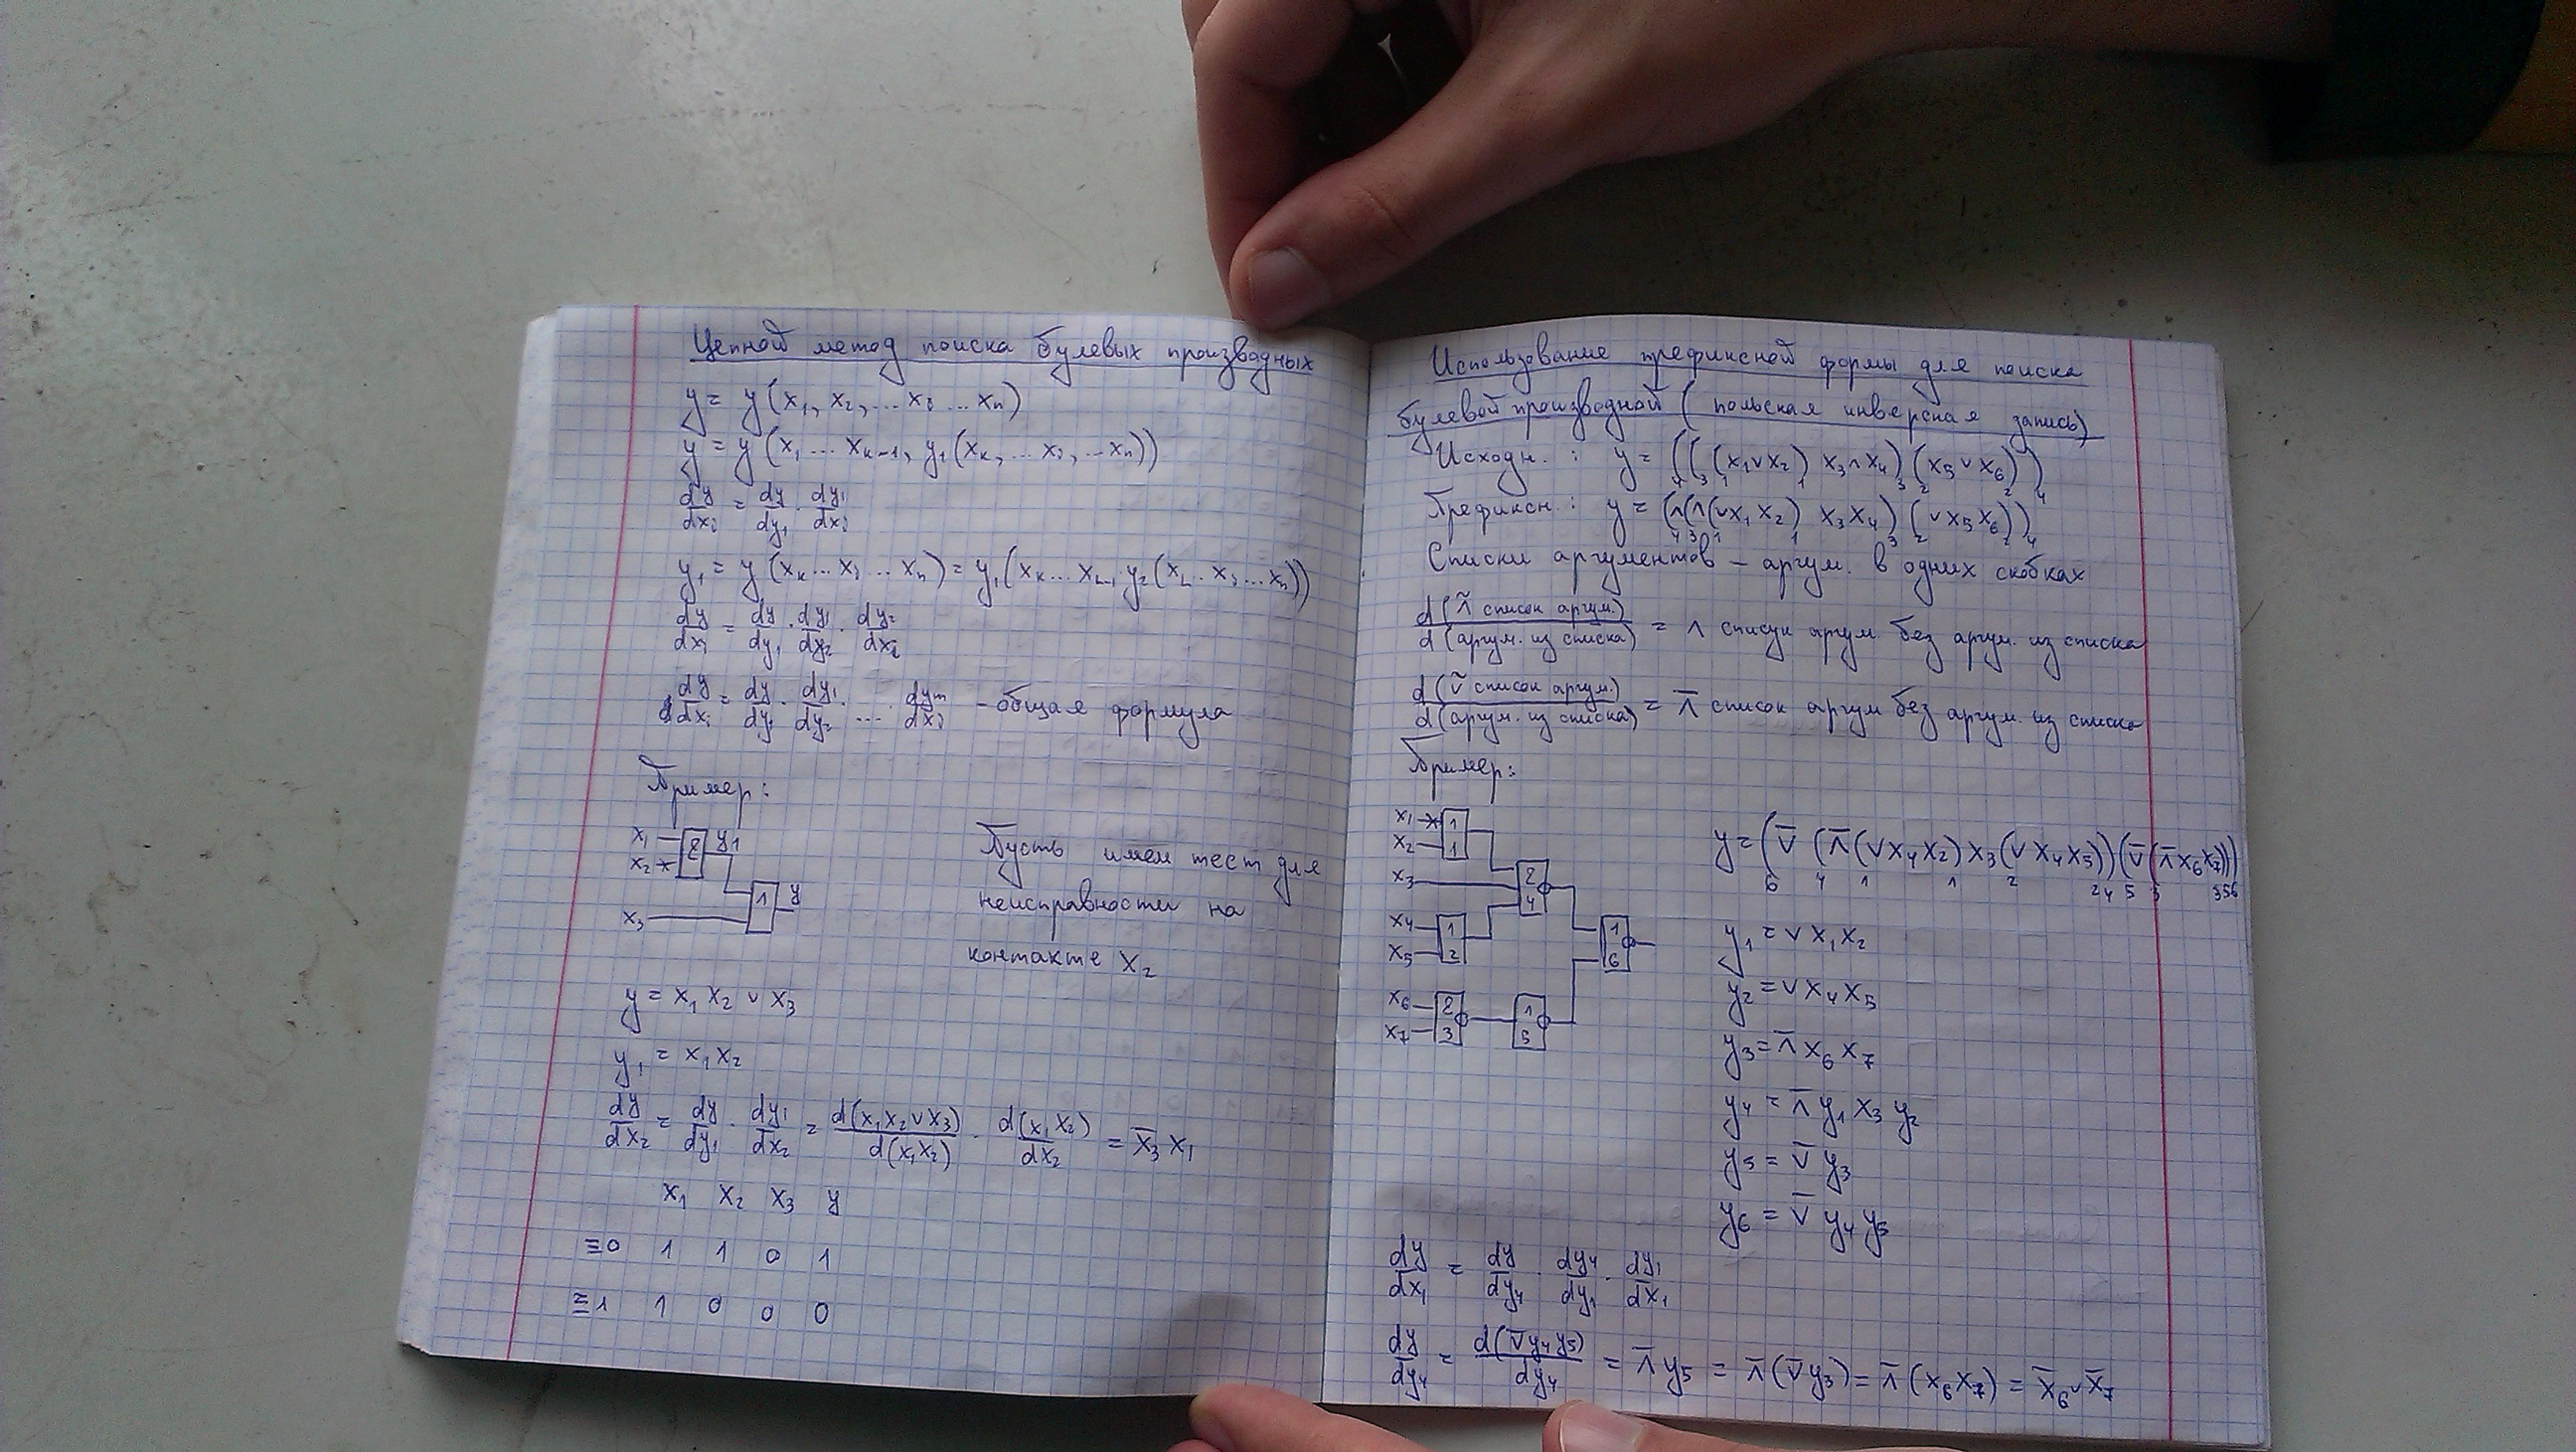 Цепной метод поиска булевых производных
y = y(x₁, x₂, ... xᵢ ... xₙ)
y = y(x₁ ... xₖ₋₁, y₁(xₖ, ... xᵢ, ... xₙ))
dy/dxᵢ = dy/dy₁ · dy₁/dxᵢ
y₁ = y(xₖ ... xᵢ ... xₙ) = y₁(xₖ ... x_L₋₁ y₂(x_L .. xᵢ ... xₙ))
dy/dxᵢ = dy/dy₁ · dy₁/dy₂ · dy₂/dxᵢ
dy/dxᵢ = dy/dy₁ · dy₁/dy₂ · ... · dyₘ/dxᵢ - общая формула
Пример:
x₁ 2 y₁
x₂
1 y
x₃
Пусть имеем тест для
неисправности на
контакте x₂
y = x₁ x₂ ∨ x₃
y₁ = x₁ x₂
dy/dx₂ = dy/dy₁ · dy₁/dx₂ = d(x₁x₂∨x₃)/d(x₁x₂) · d(x₁x₂)/dx₂ = x̅₃ x₁
x₁ x₂ x₃ y
≡0 1 1 0 1
≡1 1 0 0 0
Использование префиксной формы для поиска
булевой производной (польская инверсная запись)
Исходн. : y = (₄(₃(₁x₁∨x₂)₁ x₃∧x₄)₃ (₂x₅∨x₆)₂)₄
Префиксн. : y = (₄∧(₃∧(₁∨x₁ x₂)₁ x₃ x₄)₃ (₂∨x₅ x₆)₂)₄
Списки аргументов – аргум. в одних скобках
d(∧̃ список аргум.)/d(аргум. из списка) = ∧ списук аргум. без аргум. из списка
d(∨̃ список аргум.)/d(аргум. из списка) = ∧̅ список аргум без аргум. из списка
Пример:
x₁ 1
x₂ 1
x₃ 2
4
x₄ 1
x₅ 2
1
6
x₆ 2 1
x₇ 3 5
y = (₆∨̅ (₄∧̅(₁∨x₄x₂)₁ x₃(₂∨x₄x₅)₂)₄(₅∨̅(₃∧̅x₆x₇)₃)₅)₆
y₁ = ∨ x₁ x₂
y₂ = ∨ x₄ x₅
y₃ = ∧̅ x₆ x₇
y₄ = ∧̅ y₁ x₃ y₂
y₅ = ∨̅ y₃
y₆ = ∨̅ y₄ y₅
dy/dx₁ = dy/dy₄ · dy₄/dy₁ · dy₁/dx₁
dy/dy₄ = d(∨̅y₄y₅)/dy₄ = ∧̅ y₅ = ∧̅(∨̅y₃) = ∧̅(x₆x₇) = x̅₆∨x̅₇